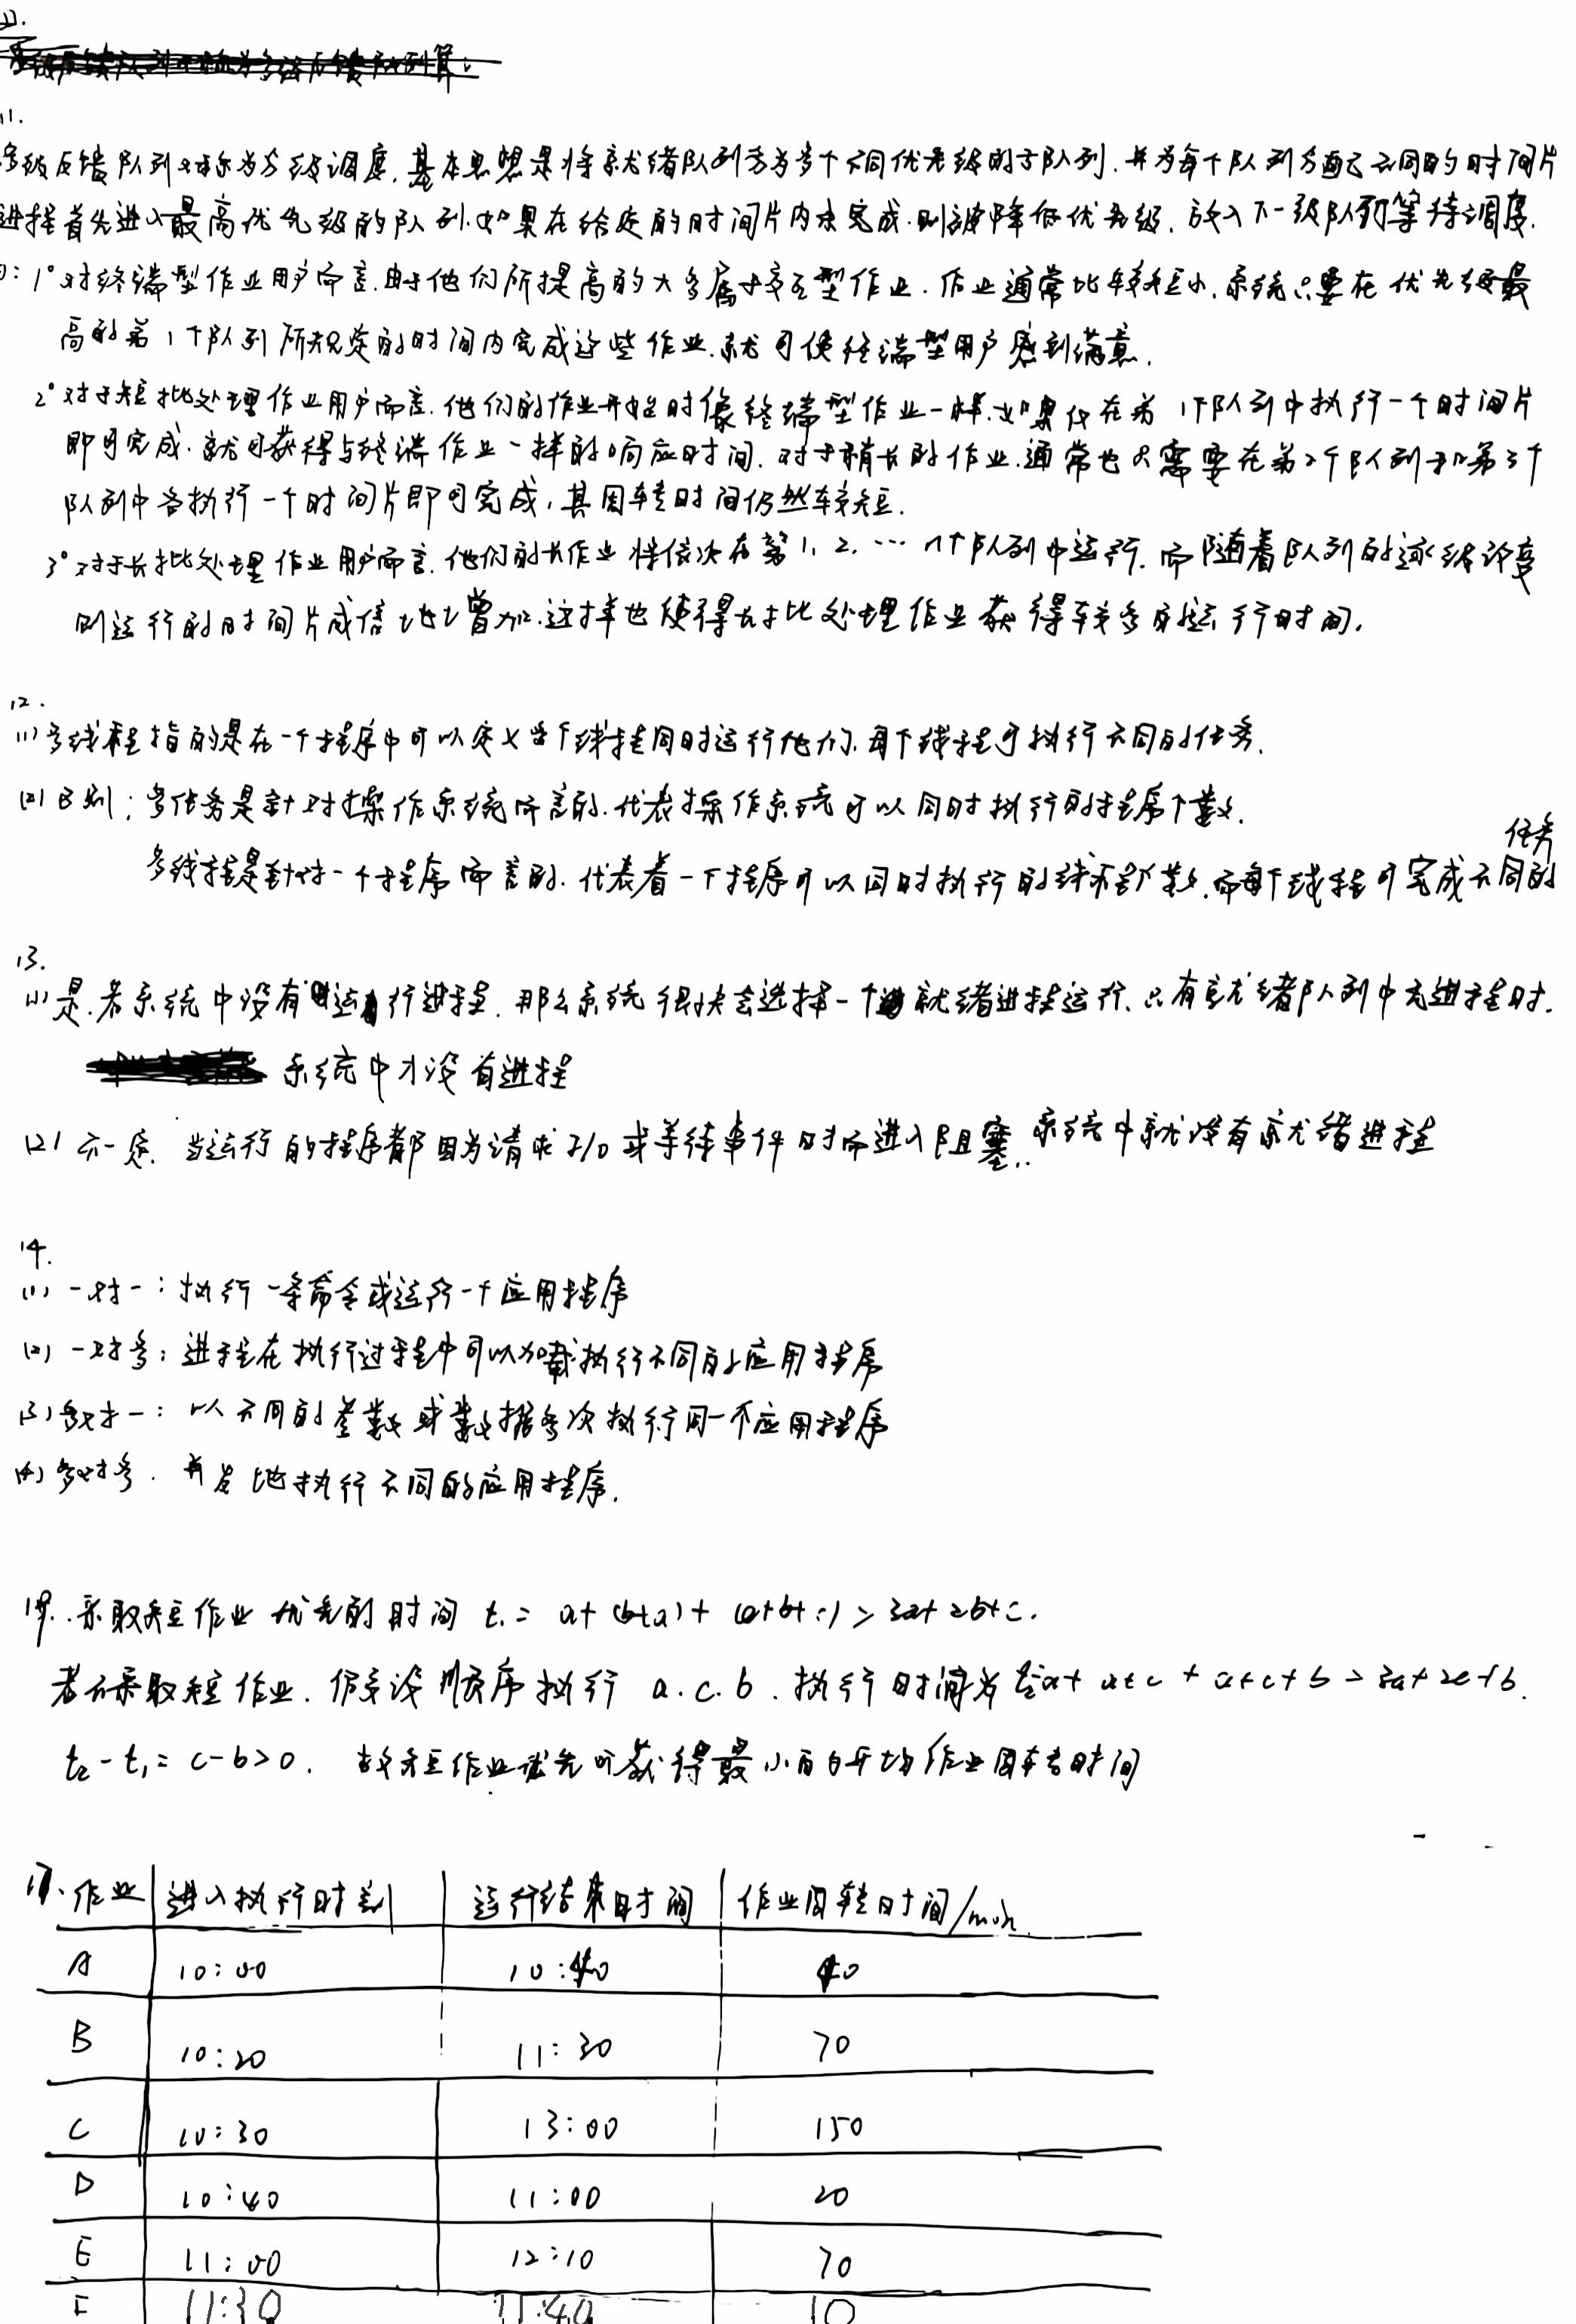 11.
多级反馈队列又称为多级调度.基本思想是将就绪队列分为多个不同优先级的子队列.并为每个队列分配不同的时间片
进程首先进入最高优先级的队列.如果在给定的时间片内未完成.则被降低优先级.放入下一级队列等待调度.
1°对终端型作业用户而言.由于他们所提高的大多属于交互型作业.作业通常比较短小.系统只要在优先级最
高的第1个队列所规定的时间内完成这些作业.就可使终端型用户感到满意.
2°对于短批处理作业用户而言.他们的作业开始时像终端型作业一样.如果仅在第1个队列中执行一个时间片
即可完成.就可获得与终端作业一样的响应时间.对于稍长的作业.通常也只需要在第2个队列和第3个
队列中各执行一个时间片即可完成,其周转时间仍然较短.
3°对于长批处理作业用户而言.他们的长作业将依次在第1,2,…n个队列中运行.而随着队列的逐级
则运行的时间片成倍地增加.这样也使得长批处理作业获得较多的运行时间.
12.
(1)多线程指的是在一个程序中可以定义多个线程同时运行他们.每个线程可执行不同的任务.
(2)区别:多任务是针对操作系统而言的.代表操作系统可以同时执行的程序个数.
任务
多线程是针对一个程序而言的.代表着一个程序可以同时执行的线程个数.而每个线程可完成不同的
13.
(1)是.若系统中没有运行进程.那么系统很快会选择一个就绪进程运行.只有就绪队列中无进程时.
系统中才没有进程
(2)不一定.当运行的程序都因为请求I/O或等待事件时而进入阻塞..系统中就没有就绪进程
14.
(1)一对一:执行一条命令或运行一个应用程序
(2)一对多:进程在执行过程中可以加载执行不同的应用程序
(3)多对一:以不同的参数或数据多次执行同一个应用程序
(4)多对多.并发地执行不同的应用程序.
采取短作业优先的时间 t₁= a+(b+a)+(a+b+c)=3a+2b+c.
若不采取短作业.假设顺序执行 a.c.b.执行时间为t₂=a+a+c+a+c+b=3a+2c+b.
t₂-t₁=c-b>0. 故短作业优先可获得最小的平均作业周转时间
17.作业 进入执行时刻 运行结束时间 作业周转时间/min
A 10:00 10:40 40
B 10:20 11:30 70
C 10:30 13:00 150
D 10:40 11:00 20
E 11:00 12:10 70
F 11:30 11:40 10